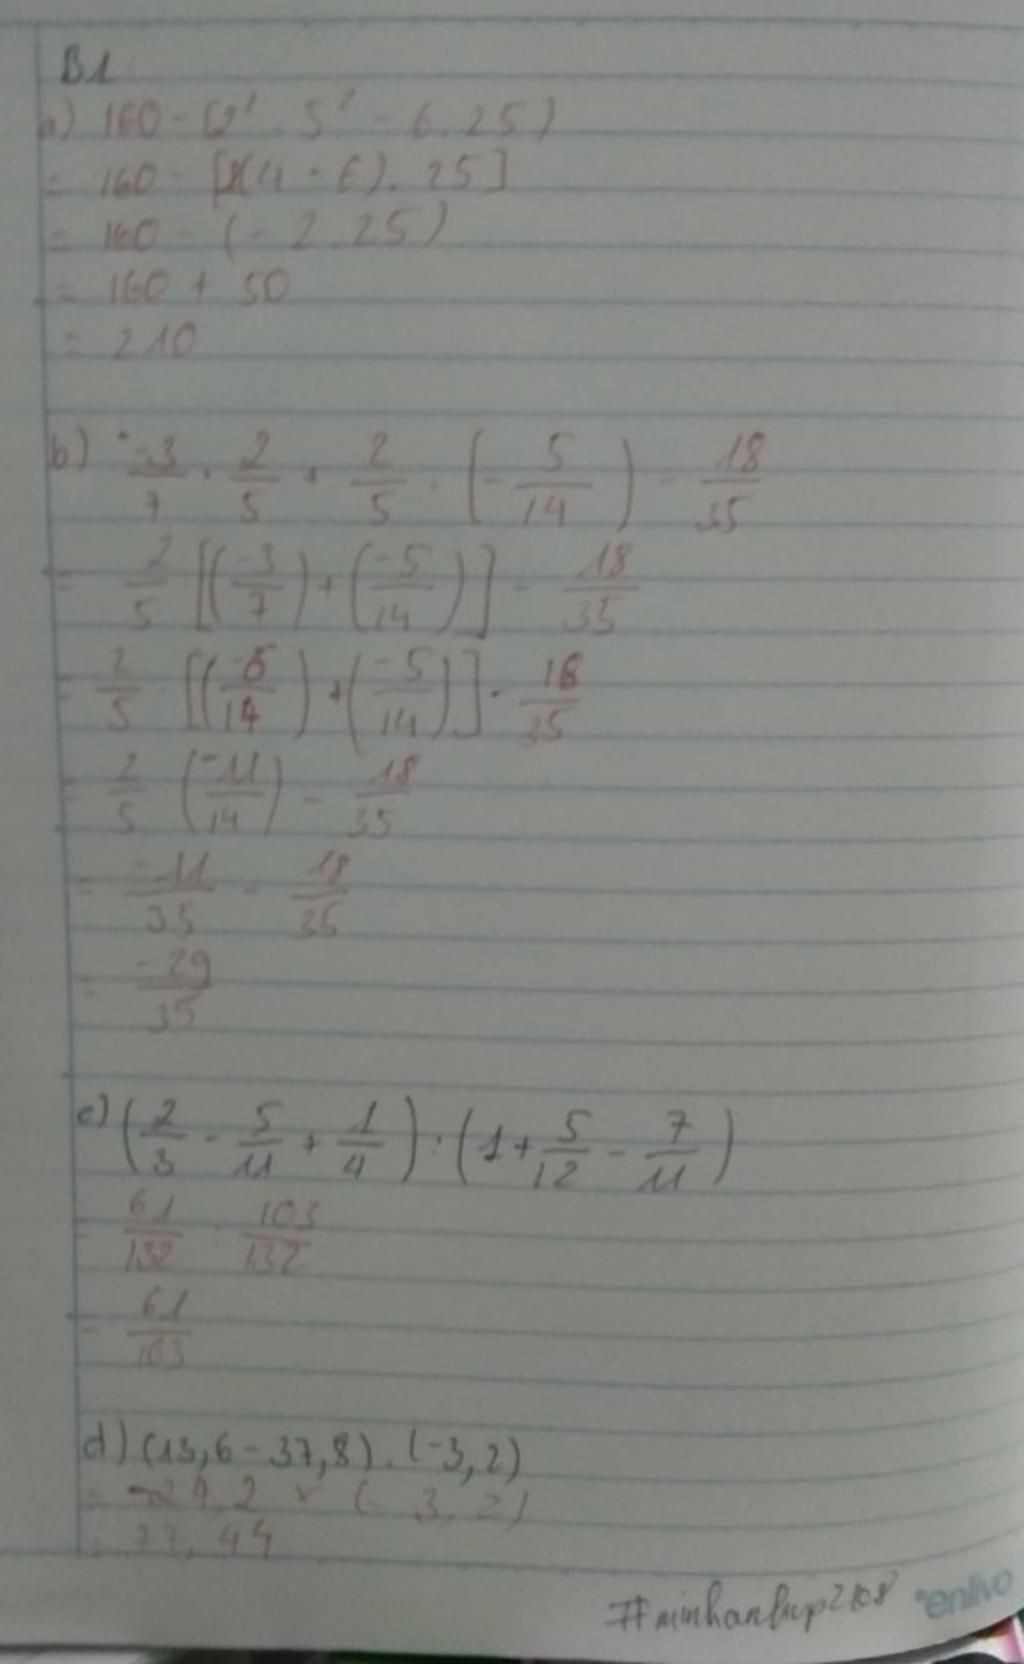 B1
a) 160 - (2² . 5² - 6 . 25)
= 160 - [(4 - 6) . 25]
= 160 - (- 2 . 25)
= 160 + 50
= 210
b) -3/7 . 2/5 + 2/5 . (- 5/14) - 18/35
= 2/5 [(-3/7) + (-5/14)] - 18/35
= 2/5 [(-6/14) + (-5/14)] - 18/35
= 2/5 (-11/14) - 18/35
= -11/35 - 18/35
= -29/35
c) (2/3 - 5/11 + 1/4) : (1 + 5/12 - 7/11)
= 61/132 : 103/132
= 61/103
d) (13,6 - 37,8) . (-3,2)
= -24,2 x (- 3,2)
= 77,44
enlivo